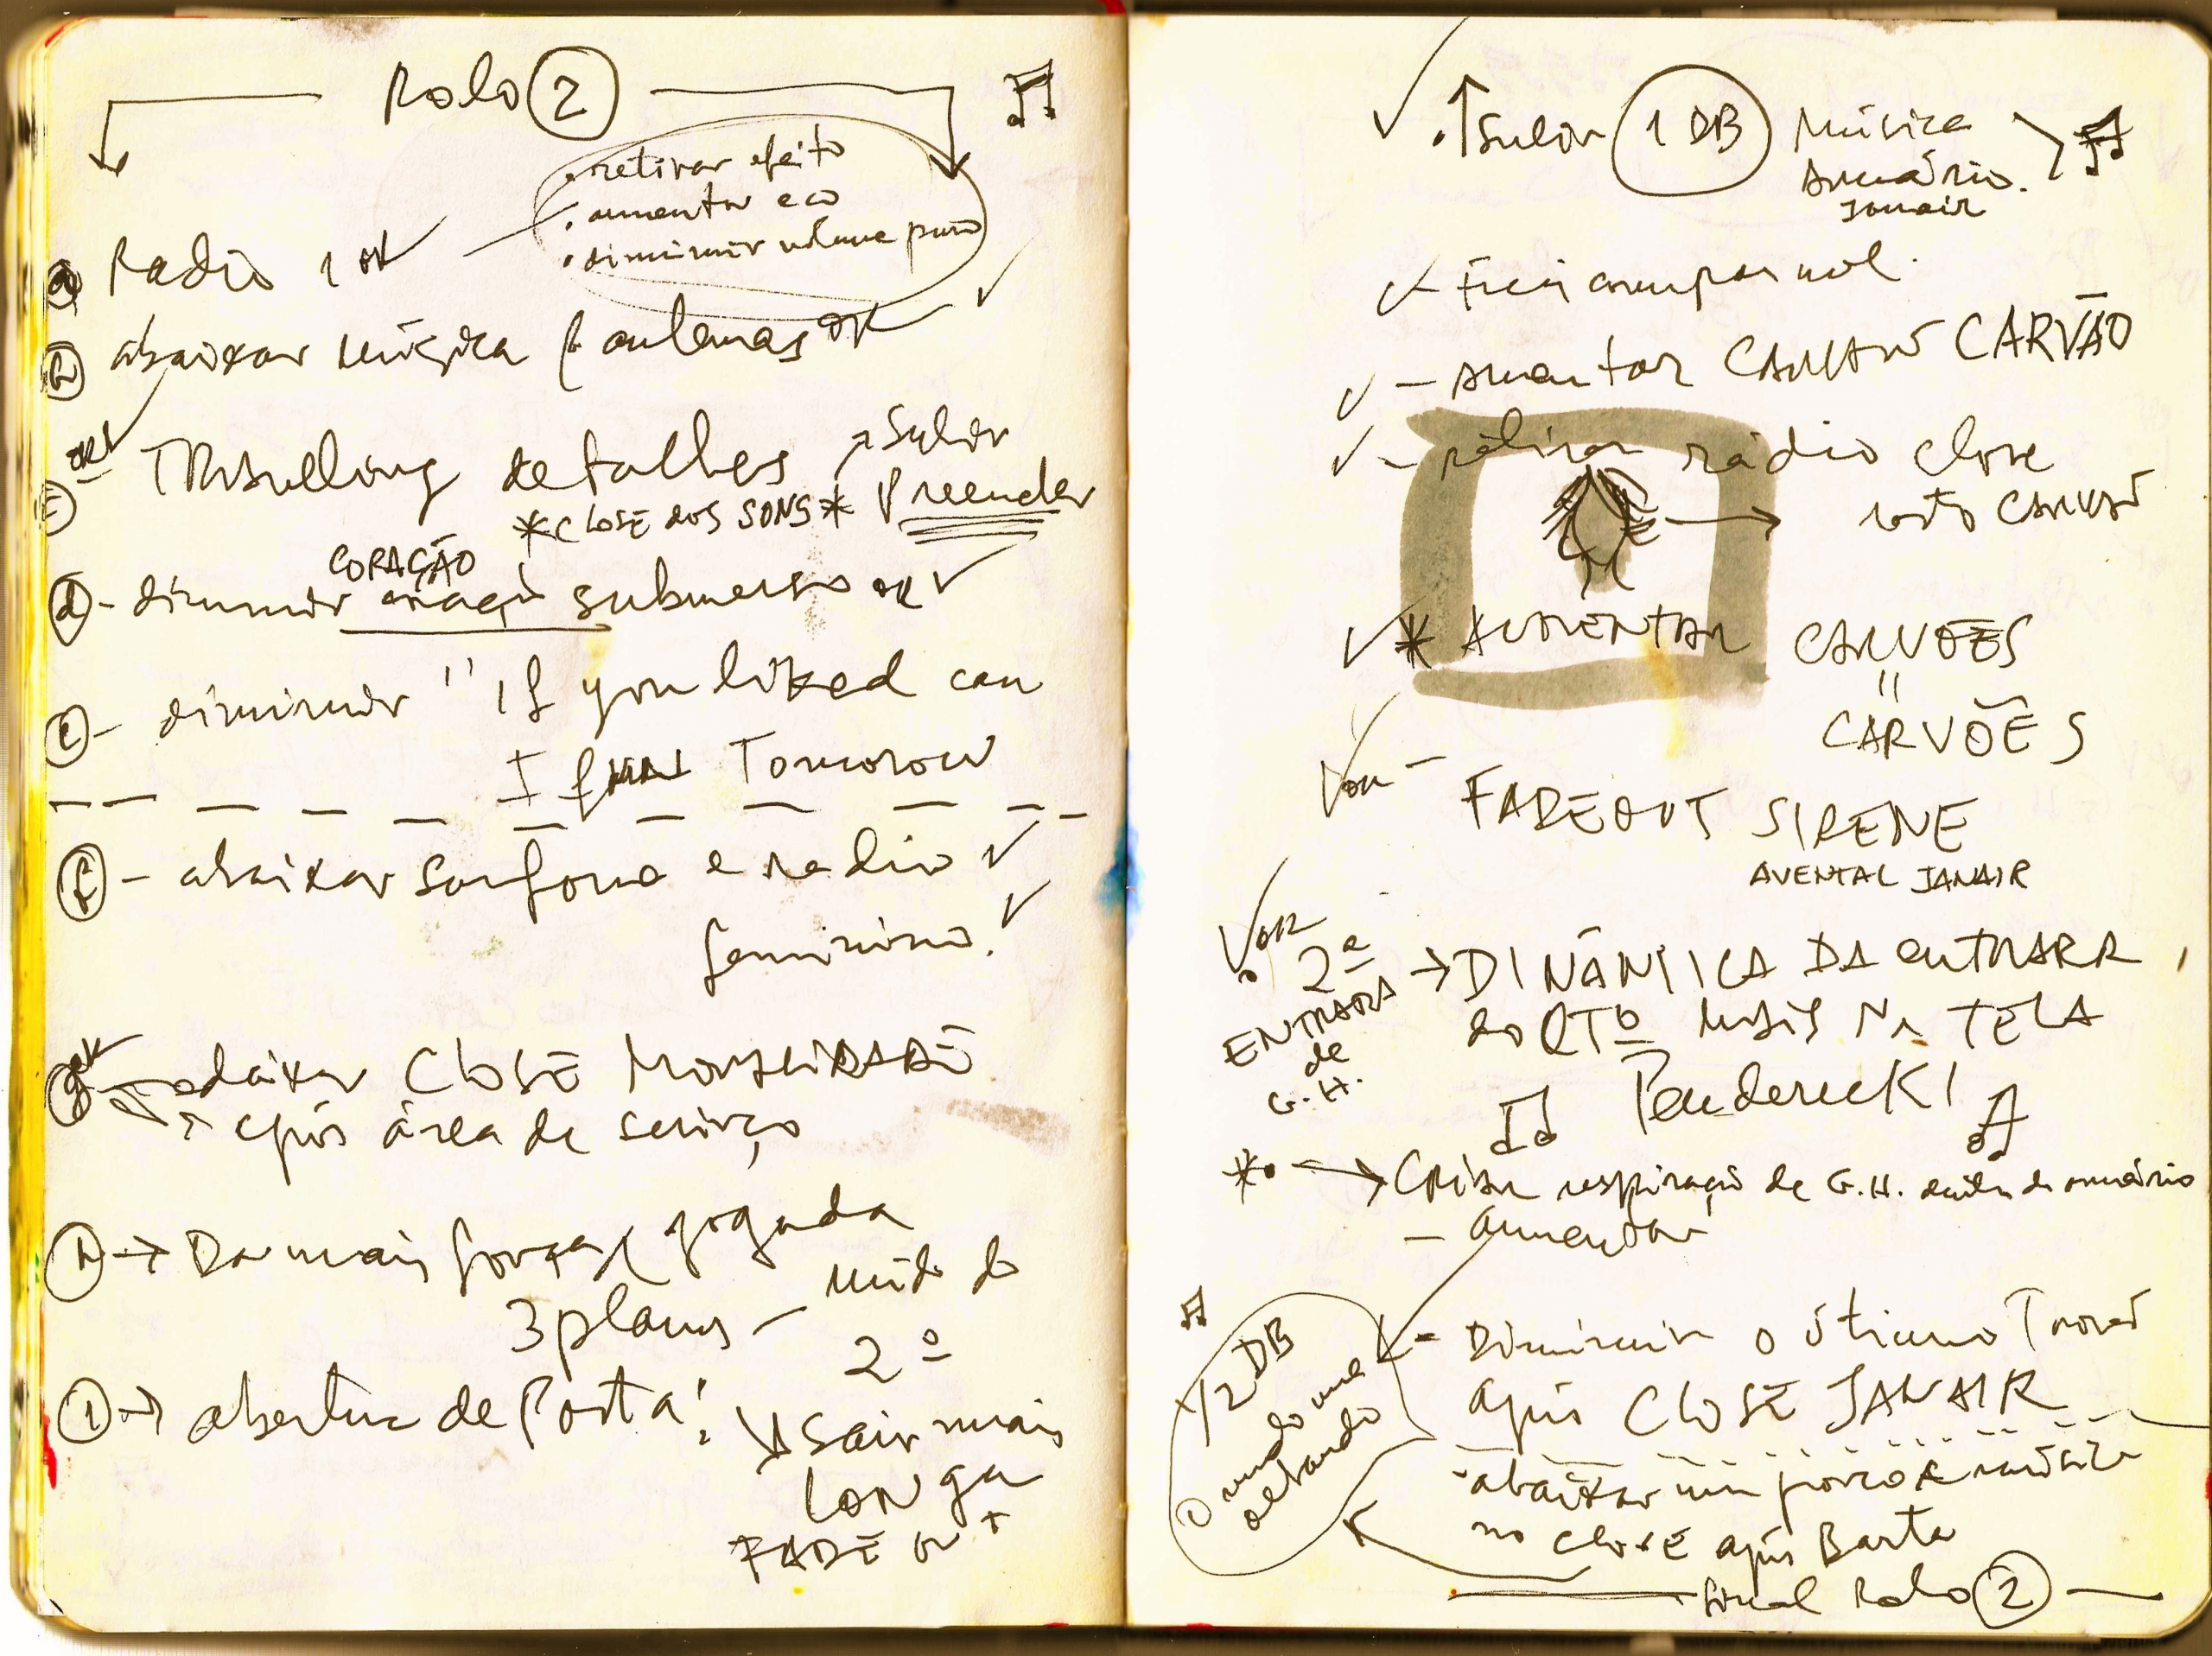 Rolo 2
. retirar efeito
. aumentar eco
. diminuir volume puro
a Radio 1 OK
b abaixar música antenas OK
OK
c Travelling detalhes Subir
*CLOSE DOS SONS* Preender
CORAÇÃO
d - diminuir submerso OK
e - diminuir "If you liked can
I Tomorow
f - abaixar sanfona e radio
feminino.
OK
g deixar CLOSE
após área de serviço
h → Dar mais força jogada
3 planos -
2º
i → abertura de Porta!
Sair mais
LONga
FADE OUT
. ↑ Subir 1 DB Música
Armário.
Janair
- aumentar CARVÃO
- retirar rádio close
rosto
* AUMENTAR CARVÕES
"
CARVÕES
OK -
FADEOUT SIRENE
AVENTAL JANAIR
OK
. 2ª → DINÂMICA DA ENTRADA
ENTRADA do QTO MAIS NA TELA
de
G.H.
Penderecki
* . → Criar respiração de G.H. dentro do armário
- aumentar
1/2 DB
- Diminuir o último
após CLOSE JANAIR
. abaixar um pouco a música
no close após Barata
final Rolo 2